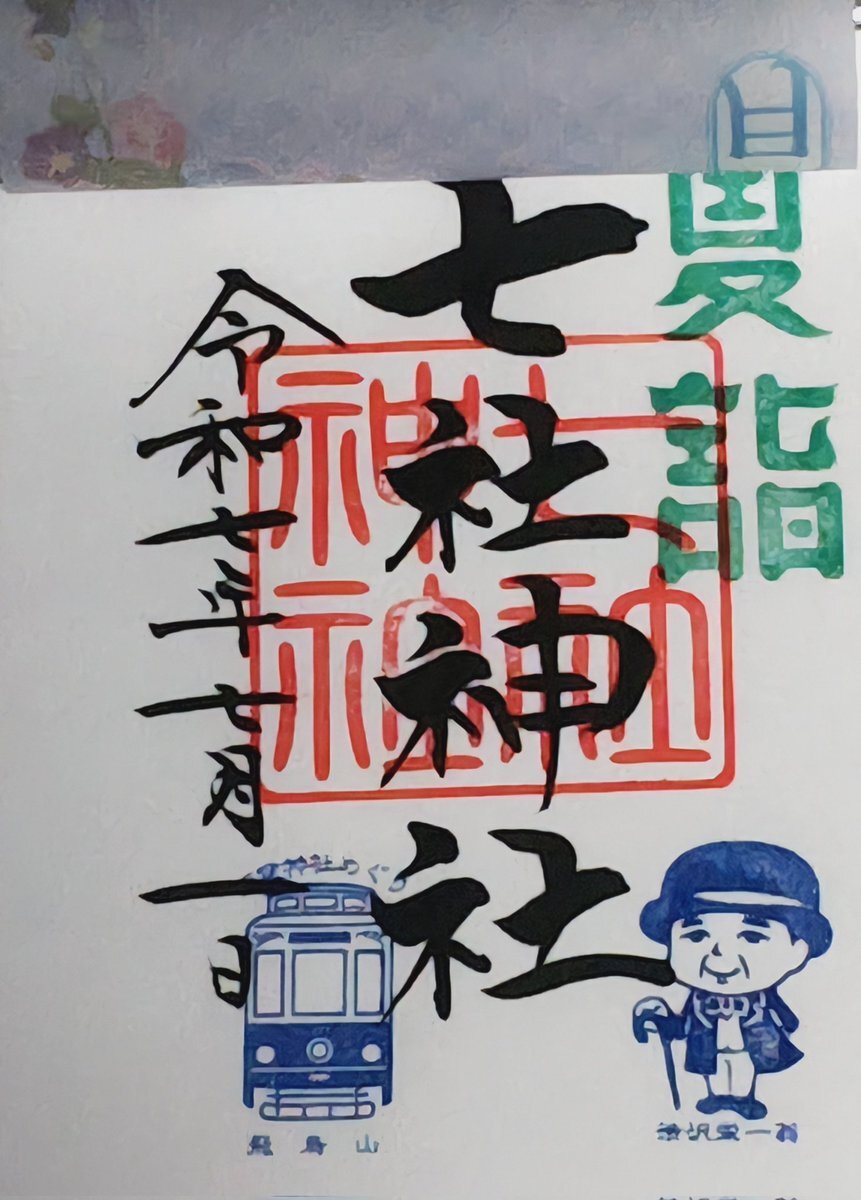 夏詣
七社神社
七社神社
令和七年七月一日
飛鳥山
渋沢栄一翁